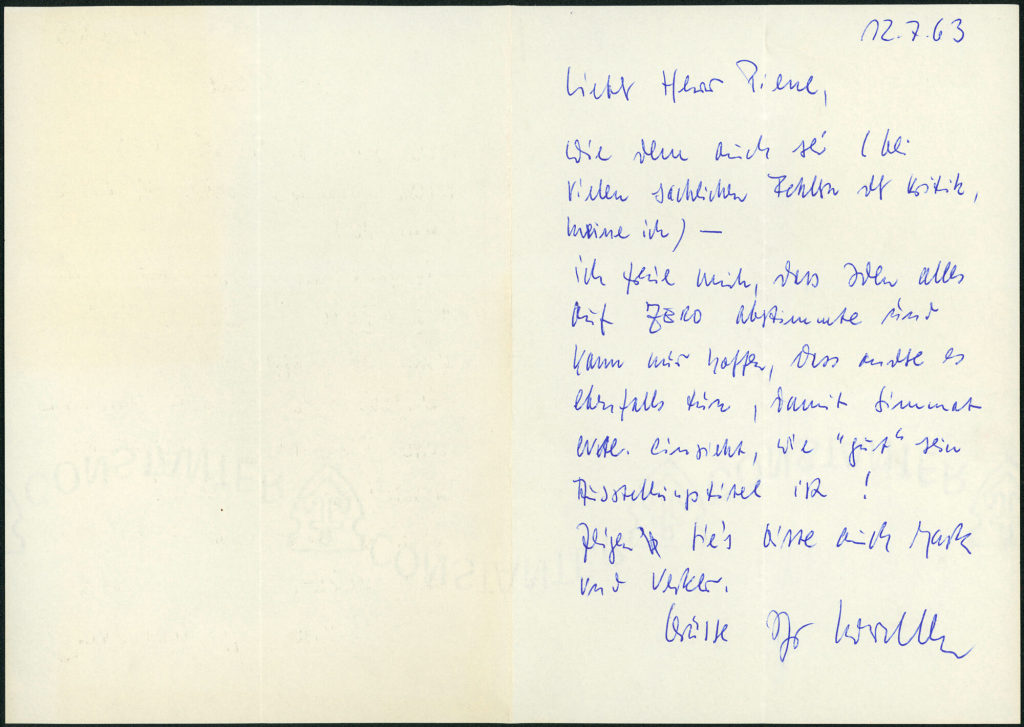 12.7.63
Lieber Herr Piene,
wie dem auch sei (bei
vielen sachlichen Fehlern der Kritik,
meine ich) —
ich freue mich, dass Iden alles
auf ZERO abstimmte und
kann nur hoffen, dass andre es
ebenfalls tun, damit Simmat
evtl. einsieht, wie "gut" sein
Ausstellungstitel ist!
Zeigen Sie's bitte auch Mack
und Uecker.
Grüsse Ihr
CONSTANTINER